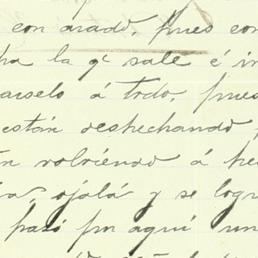 con arado, pues con
pa la qe sale é in
arselo á todo, pues
están deshechando
n volviendo á hec
a, ojalá y se logr
pasó por aquí un